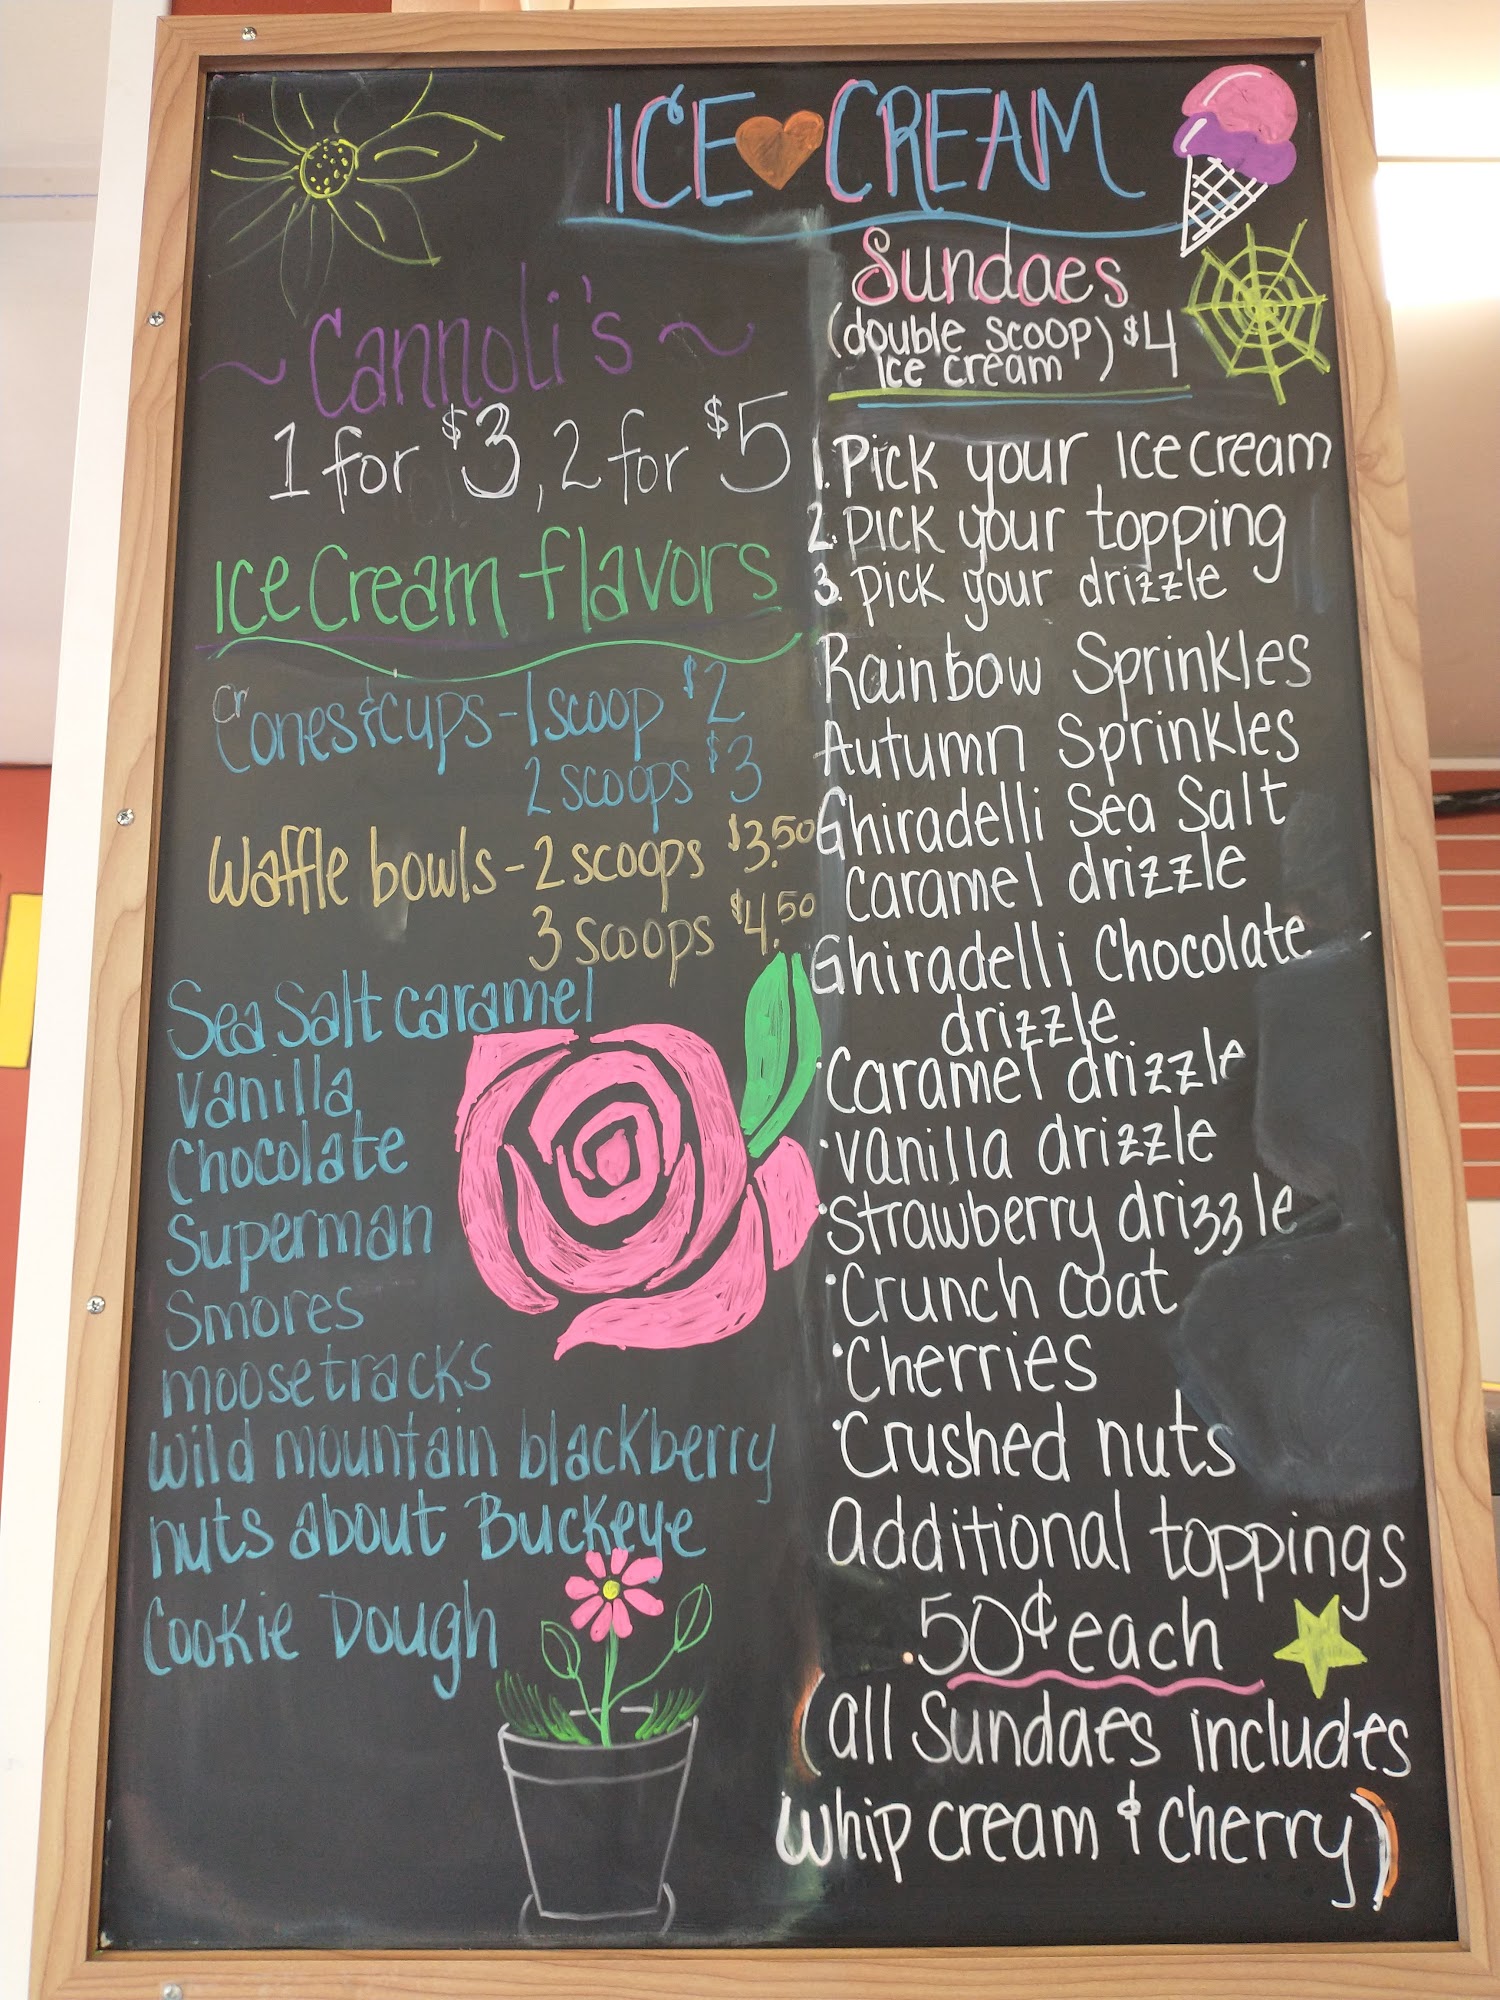 ICE CREAM
Cannoli's
1 for $3, 2 for $5
Ice Cream flavors
Cones & cups - 1 scoop $2
2 scoops $3
Waffle bowls - 2 scoops $3.50
3 scoops $4.50
Sea Salt caramel
Vanilla
Chocolate
Superman
Smores
moosetracks
wild mountain blackberry
nuts about Buckeye
Cookie Dough
Sundaes
(double scoop) $4
Ice cream
1. Pick your Ice cream
2. Pick your topping
3. Pick your drizzle
Rainbow Sprinkles
Autumn Sprinkles
Ghiradelli Sea Salt
caramel drizzle
Ghiradelli Chocolate
drizzle
• Caramel drizzle
• vanilla drizzle
• Strawberry drizzle
• Crunch coat
• Cherries
• Crushed nuts
Additional toppings
.50¢ each
(all Sundaes includes
whip cream & cherry)